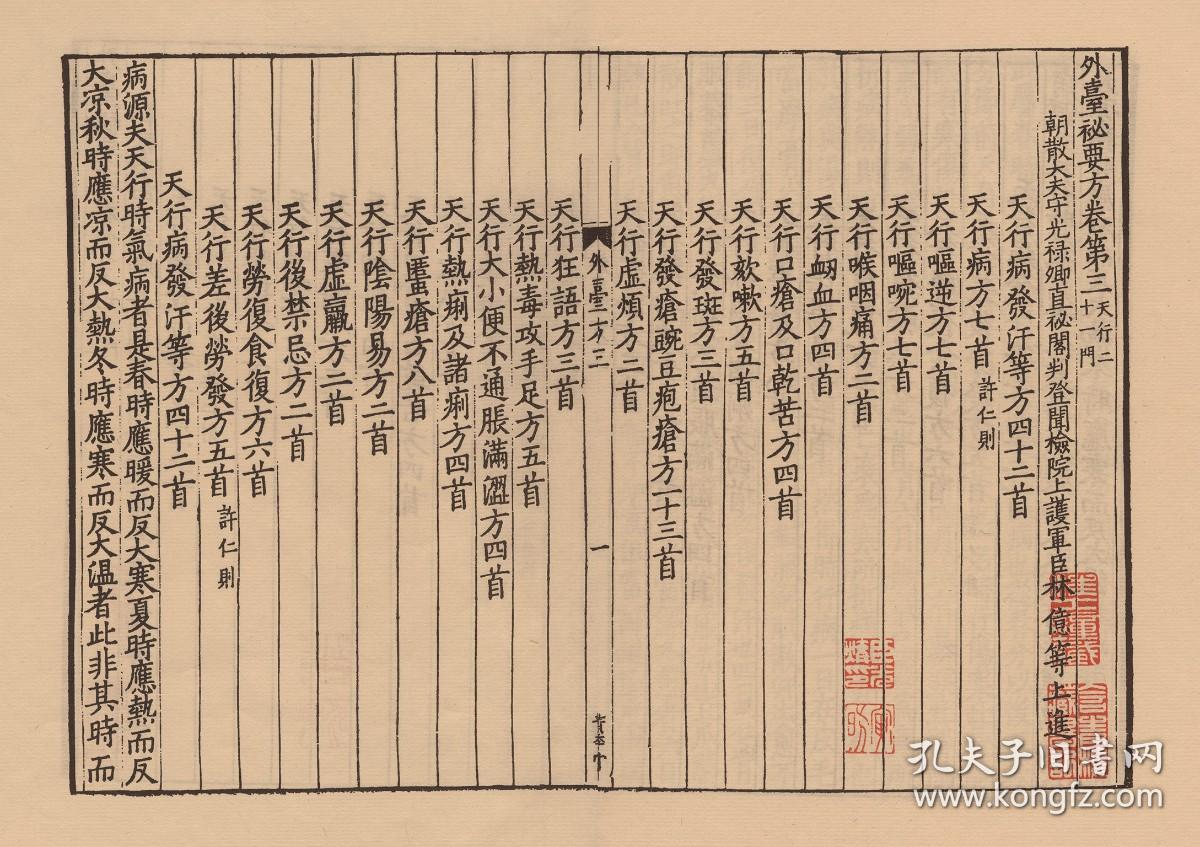 外臺祕要方卷第三天行二十一門
朝散大夫守光禄卿直祕閣判登聞檢院上護軍臣林億等上進
天行病發汗等方四十二首
天行病方七首許仁則
天行嘔逆方七首
天行嘔啘方七首
天行喉咽痛方二首
天行衂血方四首
天行口瘡及口乾苦方四首
天行欬嗽方五首
天行發斑方三首
天行發瘡豌豆疱瘡方一十三首
天行虛煩方二首
外臺方三
一
天行狂語方三首
天行熱毒攻手足方五首
天行大小便不通脹滿澀方四首
天行熱痢及諸痢方四首
天行䘌瘡方八首
天行陰陽易方二首
天行虛羸方二首
天行後禁忌方二首
天行勞復食復方六首
天行差後勞發方五首許仁則
天行病發汗等方四十二首
病源夫天行時氣病者是春時應暖而反大寒夏時應熱而反
大凉秋時應凉而反大熱冬時應寒而反大温者此非其時而
孔夫子旧书网
www.kongfz.com